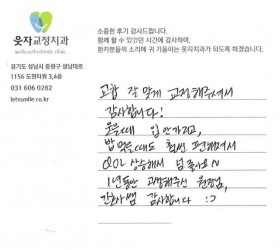 소중한 후기 감사드립니다.
함께 할 수 있었던 시간에 감사하며,
환자분들의 소리에 귀 기울이는 웃자치과가 되도록 하겠습니다.
웃자교정치과
경기도 성남시 중원구 성남대로
1156 도원타워 3,4층
031 606 0282
letssmile.co.kr
교합 잘 맞게 교정해주셔서
감사합니다!
웃을때 입 안가리고,
밥 먹을때도 훨씬 편해져서
QOL 상승해서 넘 좋아요
1년동안 고생해주신 원장님,
간호쌤 감사합니다 :)